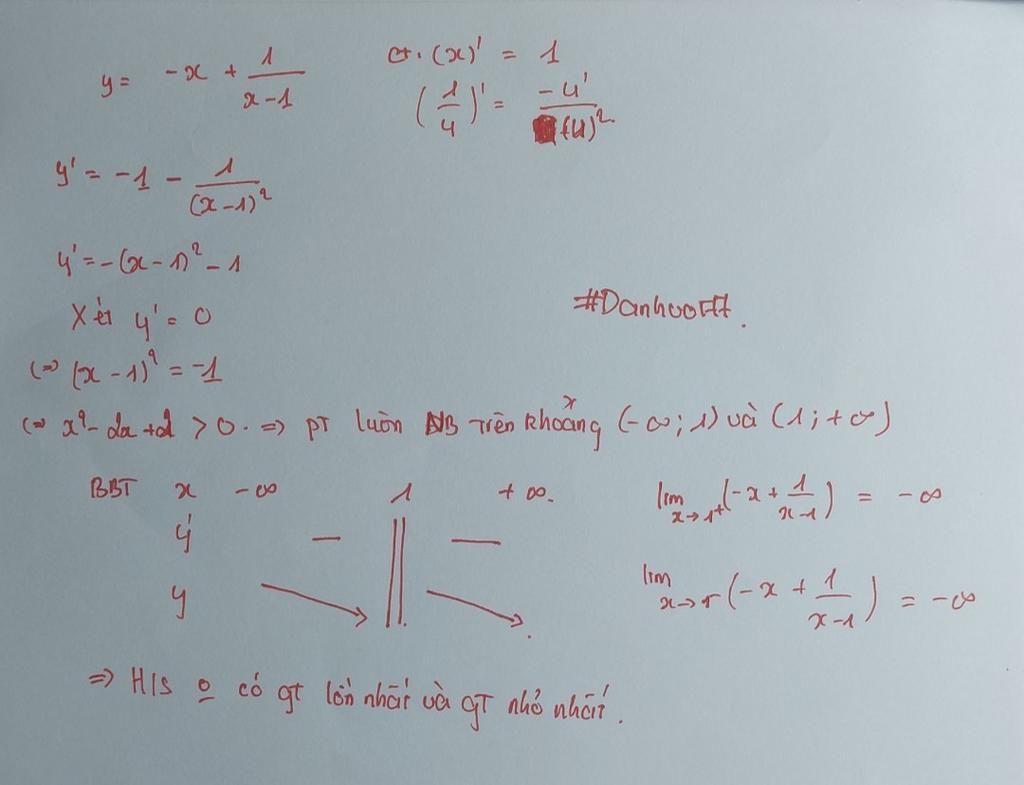 y = -x + 1/(x-1)
ct. (x)' = 1
(1/u)' = -u'/(u)²
y' = -1 - 1/(x-1)²
y' = -(x-1)² - 1
#Danhuoftt.
Xét y' = 0
(=> (x-1)² = -1
(=> x² - 2x + 2 > 0. => PT luôn NB Trên khoảng (-∞; 1) và (1; +∞)
BBT x -∞ 1 + ∞.
y' — || —
y
lim x→1⁺ (-x + 1/(x-1)) = -∞
lim x→1⁻ (-x + 1/(x-1)) = -∞
=> H/s o có gt lớn nhất và GT nhỏ nhất.